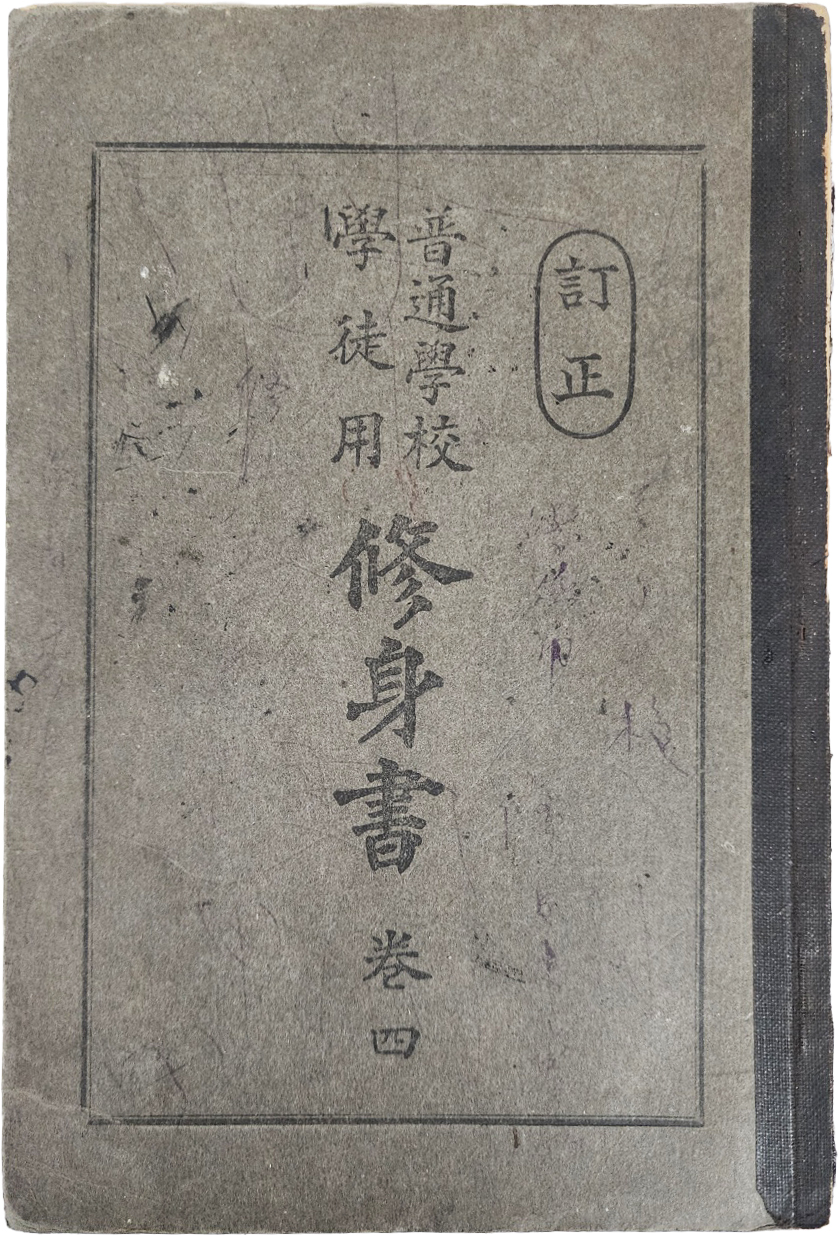 訂正
普通學校
學徒用
修身書 卷四